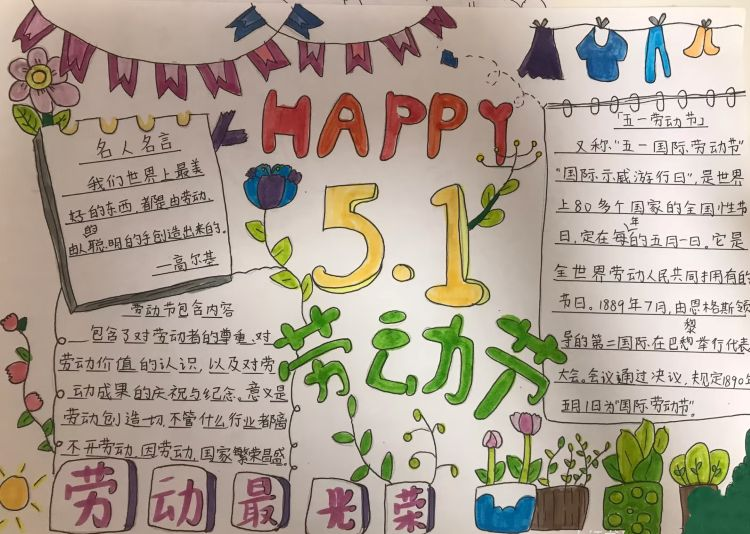 HAPPY
5.1
劳动节
名人名言
我们世界上最美
好的东西,都是由劳动、
由人聪明的手创造出来的。
的
—高尔基
劳动节包含内容
包含了对劳动者的尊重、对
劳动价值的认识,以及对劳
动成果的庆祝与纪念。意义是
劳动创造一切,不管什么行业都离
不开劳动,因劳动,国家繁荣昌盛。
「五一劳动节」
又称“五一国际劳动节”
“国际示威游行日”,是世界
上80多个国家的全国性节
日,定在每年的五月一日。它是
全世界劳动人民共同拥有的
节日。1889年7月,由恩格斯领
导的第二国际在巴黎举行代表
大会。会议通过决议,规定1890年
五月1日为“国际劳动节”。
劳动最光荣